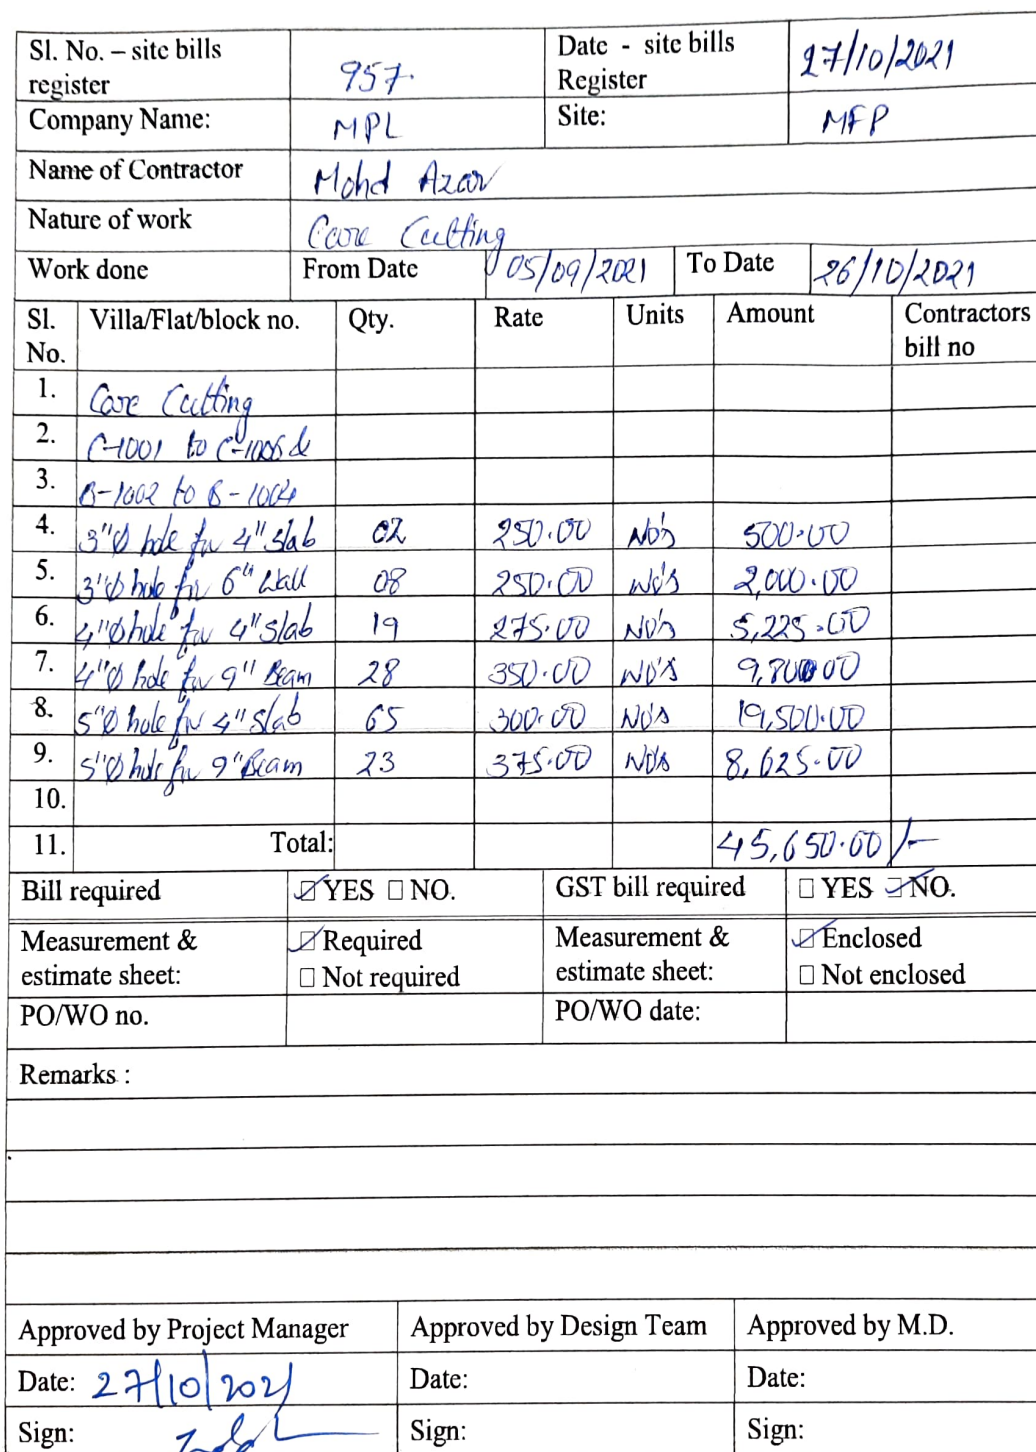 Sl. No. – site bills register 957. Date - site bills Register 27/10/2021
Company Name: MPL Site: MFP
Name of Contractor Mohd Azar
Nature of work Core Cutting
Work done From Date 05/09/2021 To Date 26/10/2021
Sl. No. Villa/Flat/block no. Qty. Rate Units Amount Contractors bill no
1. Core Cutting
2. C-1001 to C-1006 &
3. B-1002 to B-1004
4. 3"Ø hole for 4" Slab 02 250.00 No's 500.00
5. 3"Ø hole for 6" Wall 08 250.00 No's 2,000.00
6. 4"Ø hole for 4" Slab 19 275.00 No's 5,225.00
7. 4"Ø hole for 9" Beam 28 350.00 No's 9,800.00
8. 5"Ø hole for 4" Slab 65 300.00 No's 19,500.00
9. 5"Ø hole for 9" Beam 23 375.00 No's 8,625.00
10.
11. Total: 45,650.00/-
Bill required ☑ YES ☐ NO. GST bill required ☐ YES ☑ NO.
Measurement & estimate sheet: ☑ Required ☐ Not required Measurement & estimate sheet: ☑ Enclosed ☐ Not enclosed
PO/WO no. PO/WO date:
Remarks :
Approved by Project Manager Approved by Design Team Approved by M.D.
Date: 27/10/2021 Date: Date:
Sign: Sign: Sign: